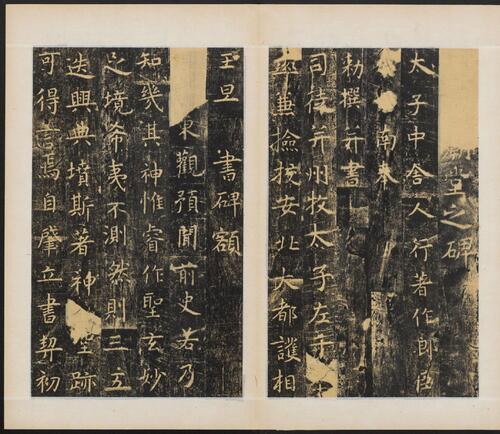 堂之碑
太子中舍人行著作郎臣
南奉
勅撰并書
司徒并州牧太子左千
率兼撿挍安北大都護相
王旦書碑額
東觀預聞前史若乃
知幾其神惟睿作聖玄妙
之境希夷不測然則三五
迭興典墳斯著神聖跡
可得言焉自肇立書契初